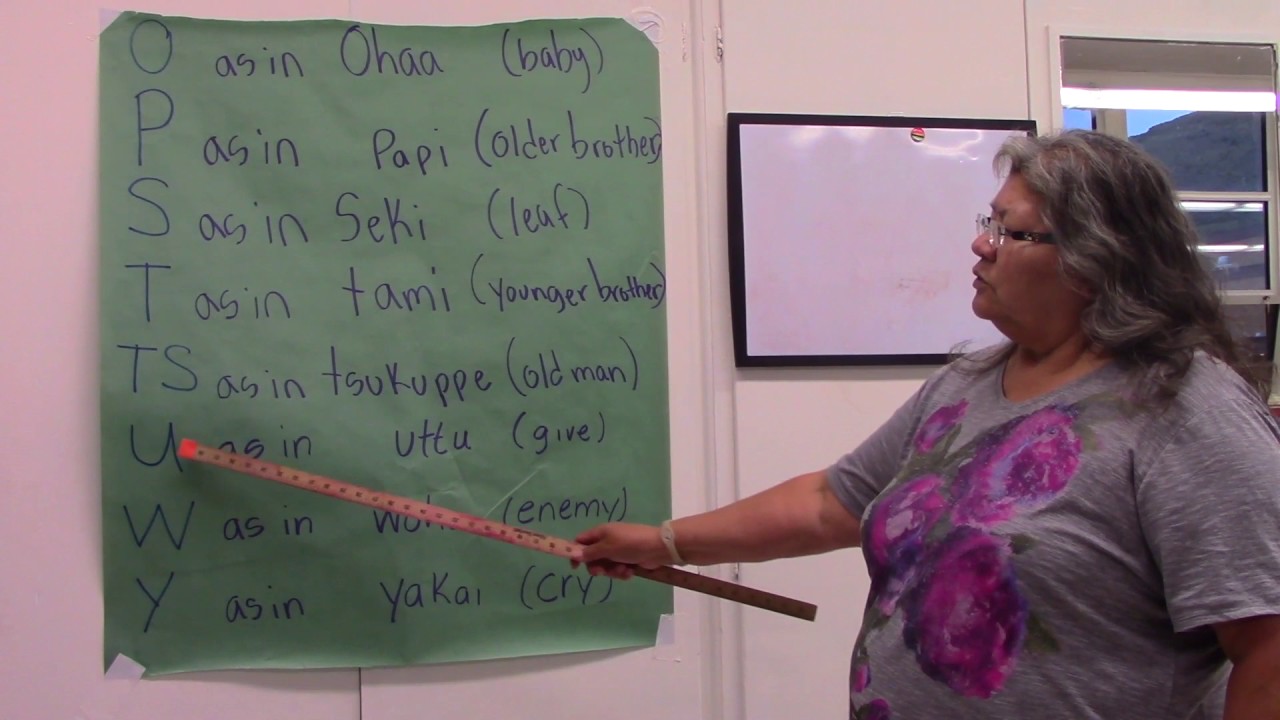 O as in Ohaa (baby)
P as in Papi (older brother)
S as in Seki (leaf)
T as in tami (younger brother)
TS as in tsukuppe (old man)
U as in uttu (give)
W as in (enemy)
Y as in yakai (cry)